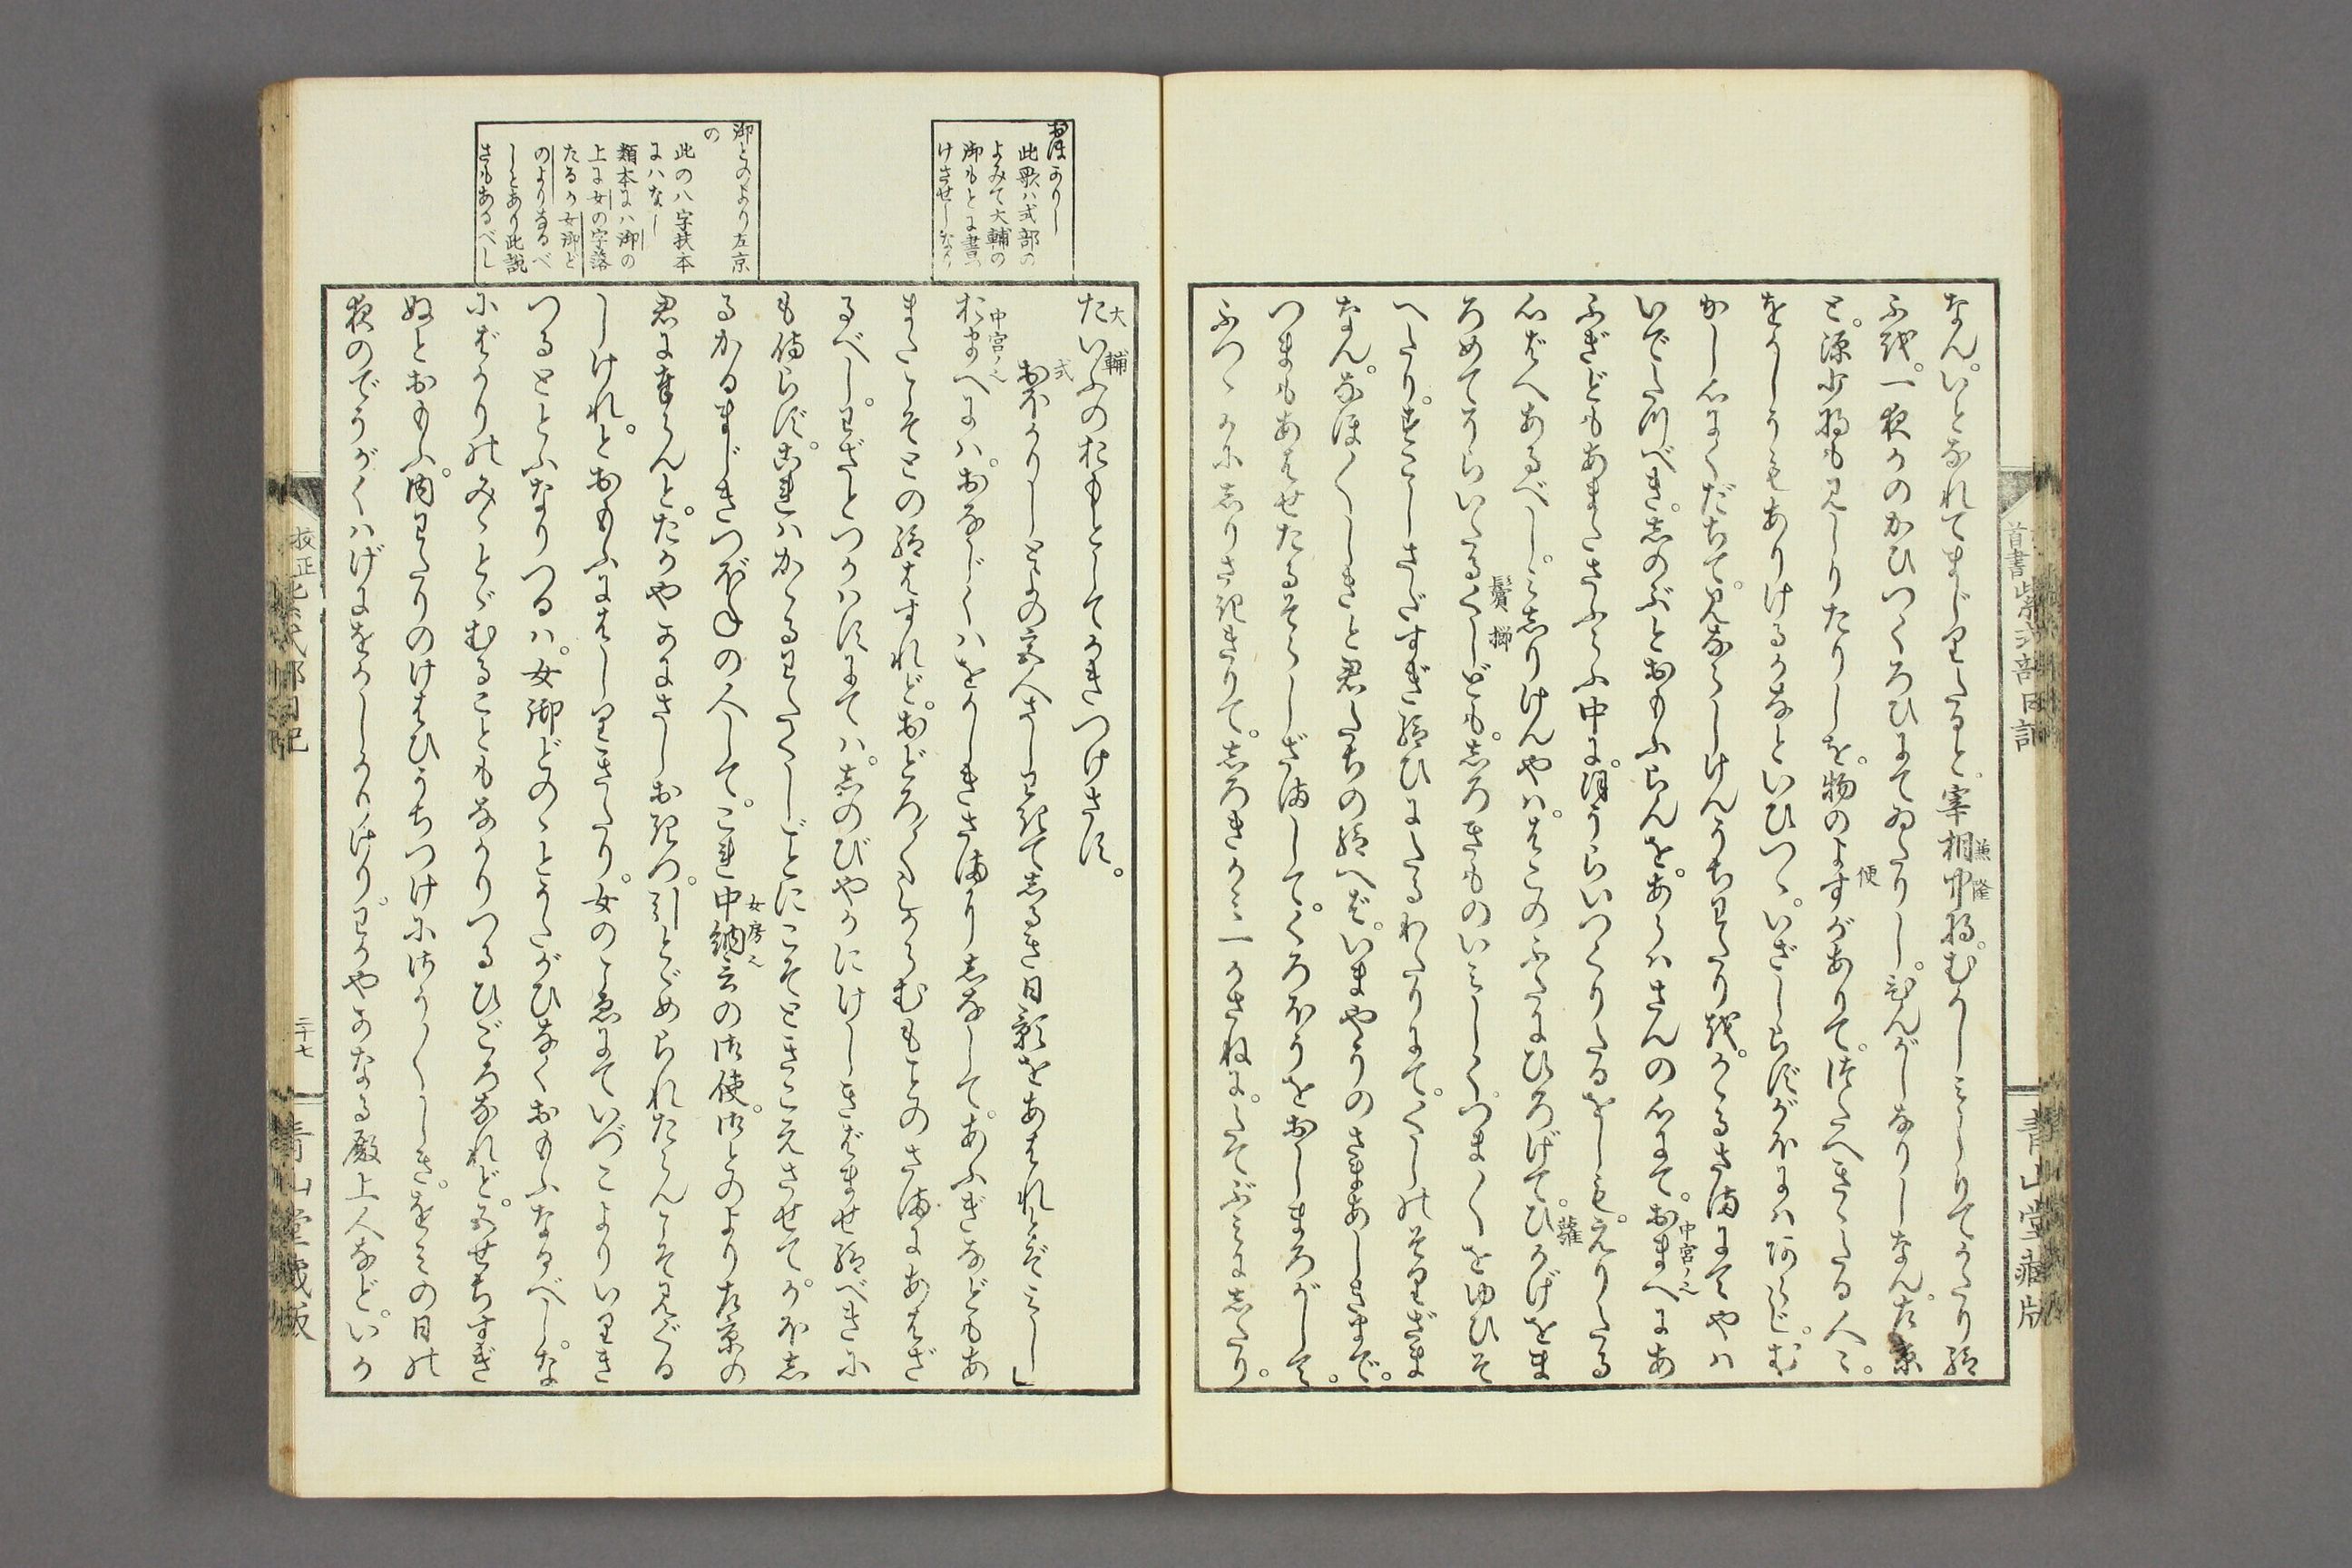 なん。いとなれてまじりたると。宰相中将。むかしみしりてかたり給
ふを。一夜かのかひつくろひにてゐたりし。ひんがしなりしなん。左京
と。源少将も見しりたりしを。物のよすがありて。つたへきゝたる人ゝ。
をかしうもありけるかなといひつゝ。いざしらずがほにはあらじ。む
かし心にくだちて。見ならしけんうちわたりを。かゝるさまにてやは
いでたつべき。しのぶとおもふらんを。あらはさんの心にて。おまへにあ
ふぎどもあまたさふらふ中に。ほうらいつくりたるをしも。えりたる
心ばへあるべし。みしりけんやは。はこのふたにひろげて。ひかげをま
ろめてそらいたるくしども。しろきものいみしてつま〴〵をゆひそ
へたり。すこしさだすぎ給ひにたるわたりにて。くしのそりざま
なん。なほ〳〵しきと君たちの給へば。いまやうのさまあしきまで。
つまもあはせたるそらしざまして。くろほうをおしまろがして。
ふつゝかにしりさききりて。しろきかみ一かさねに。たてぶみにしたり。
兼隆
便
中宮ノ也
蘿
鬢櫛
首書紫式部日記
青山堂蔵版
おほかりし
此歌ハ式部の
よみて大輔の
御もとに書
けさせしなり
御とのより左京
の
此の八字扶本
にハなし
類本にハ御の
上に女の字落
たるか女御ど
のよりなるべ
しとあり此説
さもあるべし
たいふのおもとしてかきつけさす。
おほかりしとよの宮人さしわきてしるき日影をあはれとぞみし」
おまへには。おなじくはをかしきさまにしなして。あふぎなどもあ
またこそとの給はすれど。おどろ〳〵しからむもことのさまにあはざ
るべし。わざとつかはすにては。しのびやかにけしきばませ給べきに
も侍らず。これはかゝるわたくしごとにこそときこえさせて。かほし
るかるまじきつぼねの人して。これ中納言の御使。御とのより左京の
君に奉らんと。たかやかにさしおきつ。引とゞめられたらんこそ見ぐる
しけれ。とおもふにはしりきたり。女のこゑにていづこよりいりき
つるととふなりつるは。女御どのゝとうたがひなくおもふなるべし。な
にばかりのみゝとゞむることもなかりつるひごろなれど。五せちすぎ
ぬとおもふ。内わたりのけはひうちつけにさう〴〵しき。をみの日の
夜のでうがくはげにをかしかりけり。わかやかなる殿上人など。いか
大輔
式
中宮ノ也
女房也
校正紫式部日記
二十七
青山堂蔵版